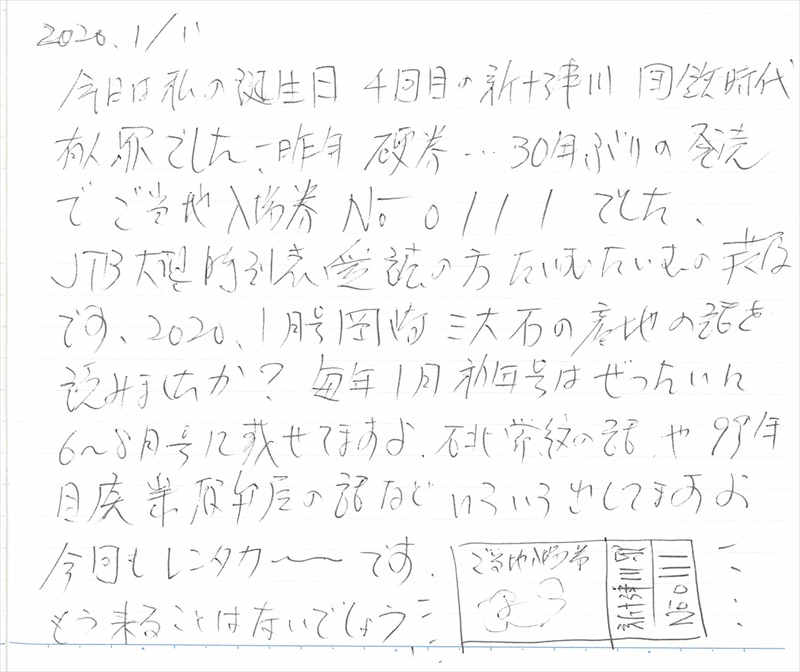 2020.1/11
今日は私の誕生日 4回目の新十津川 国鉄時代
有人駅でした、一昨年 硬券…30年ぶりの発売
で ご当地入場券 No 0111 でした、
JTB大型時刻表愛読の方 たいむたいむの
です、2020、1月号岡崎 三大石の産地の話を
読みましたか? 毎年1月 初年号はぜったいに
6〜8月号に載せてますよ、石北常紋の話 や 99年
目廃業 の話など いろいろ出してますよ
今回もレンタカー〜です、
もう来ることはないでしょう…
ご当地入場券
新十津川駅
No 0111